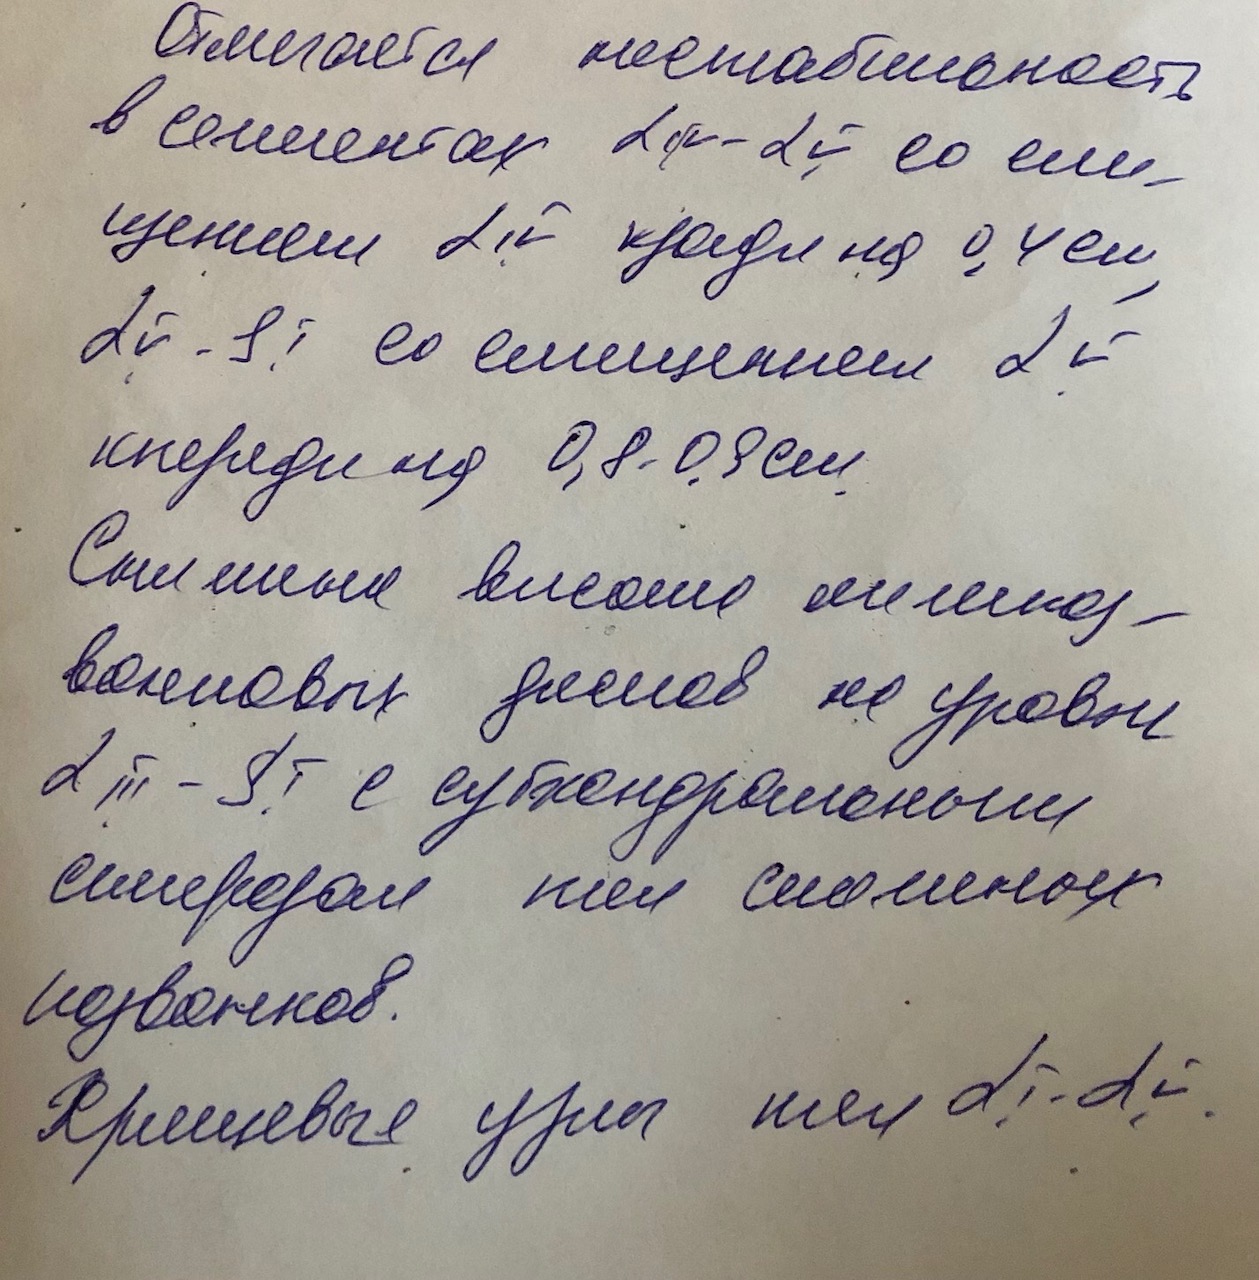 Отмечается нестабильность
в сегментах LIV-LV со сме-
щением LIV кзади на 0,4 см,
LV-SI со смещением LV
кпереди на 0,8-0,9 см.
Снижена высота межпоз-
вонковых дисков на уровне
LIII-SI с субхондральным
склерозом тел смежных
позвонков.
Хрящевые узлы тел LI-LV.